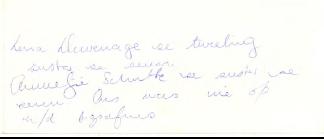 Lena Duvenage se tweeling
suster se seun.
Annetjie Schutte se suster se
seun. Ons was nie op
n/d begrafnis